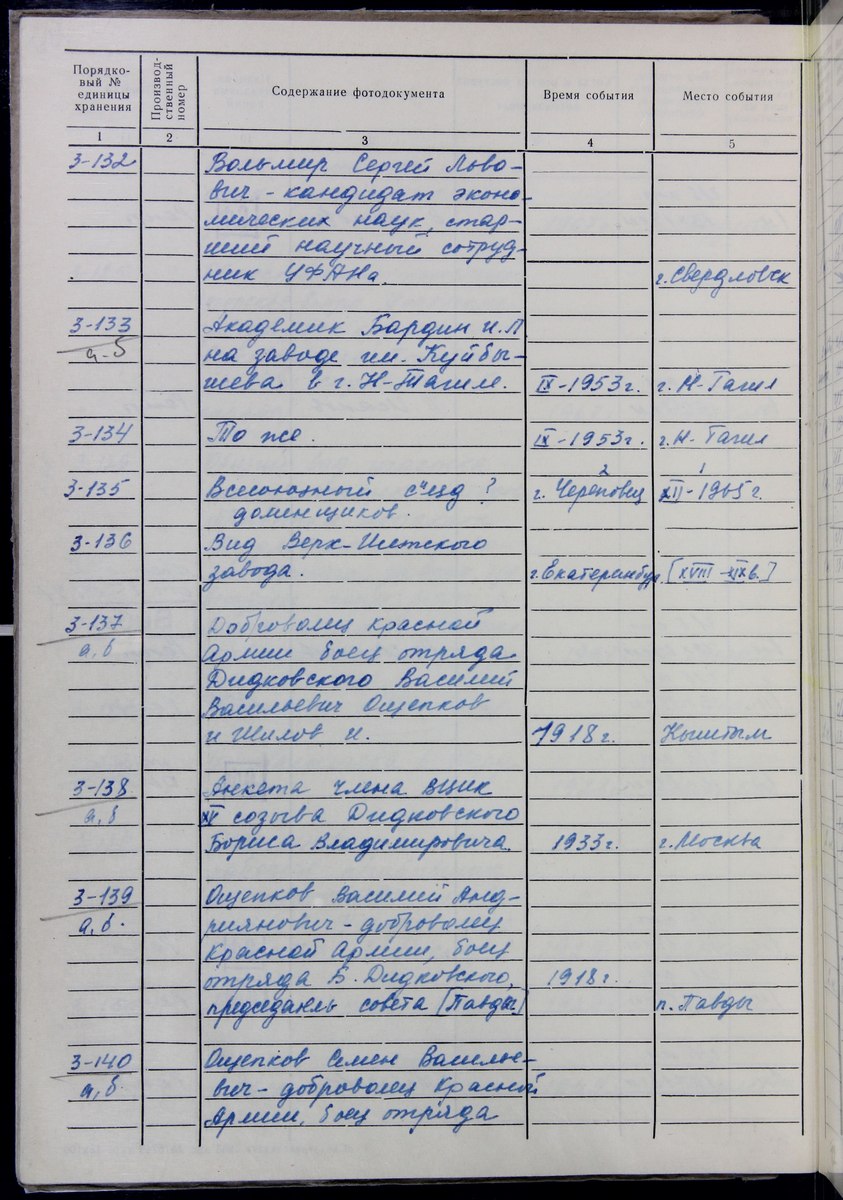 Порядко-
вый №
единицы
хранения
Производ-
ственный
номер
Содержание фотодокумента
Время события
Место события
1 2 3 4 5
3-132 Вольмир Сергей Льво-
вич - кандидат эконо-
мических наук, стар-
ший научный сотруд-
ник УФАНа г. Свердловск
3-133 Академик Бардин И.П.
а-б на заводе им. Куйбы-
шева в г. Н-Тагиле. IX-1953г. г. Н-Тагил
3-134 То же. IX-1953г. г. Н-Тагил
2 1
3-135 Всесоюзный с"езд ? г. Череповец XII-1965г.
доменщиков.
3-136 Вид Верх-Исетского
завода. г. Екатеринбург [XVIII-XIXв.]
3-137 Доброволец Красной
а, б Армии боец отряда
Дидковского Василий
Васильевич Ощепков
и Шилов И. 1918г. Кыштым
3-138 Анкета члена ВЦИК
а, б XV созыва Дидковского
Бориса Владимировича. 1933г. г. Москва
3-139 Ощепков Василий Анд-
а, б. риянович - доброволец
Красной Армии, боец
отряда Б. Дидковского, 1918г.
председатель совета [Павды] п. Павды
3-140 Ощепков Семен Василье-
а, б. вич - доброволец Красной
Армии, боец отряда